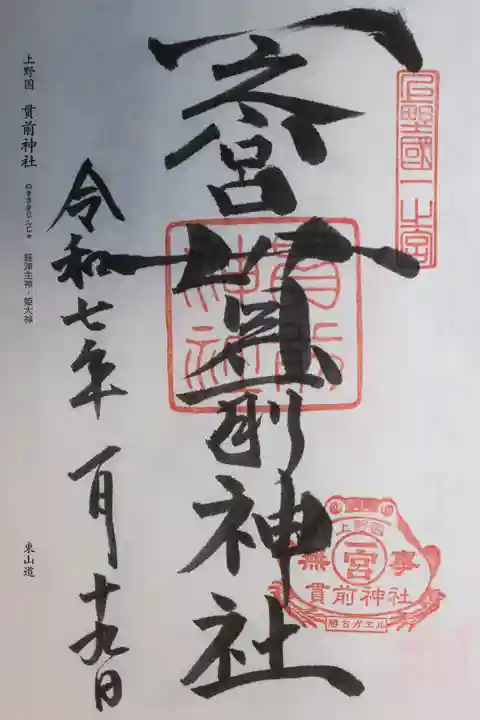 上野國一之宮
一之宮貫前神社
貫前神社
令和七年一月十九日
上野国 貫前神社 ぬきさきじんじゃ 經津主神・姫大神
東山道
上野国
一宮
無事
貫前神社
勝ちガエル